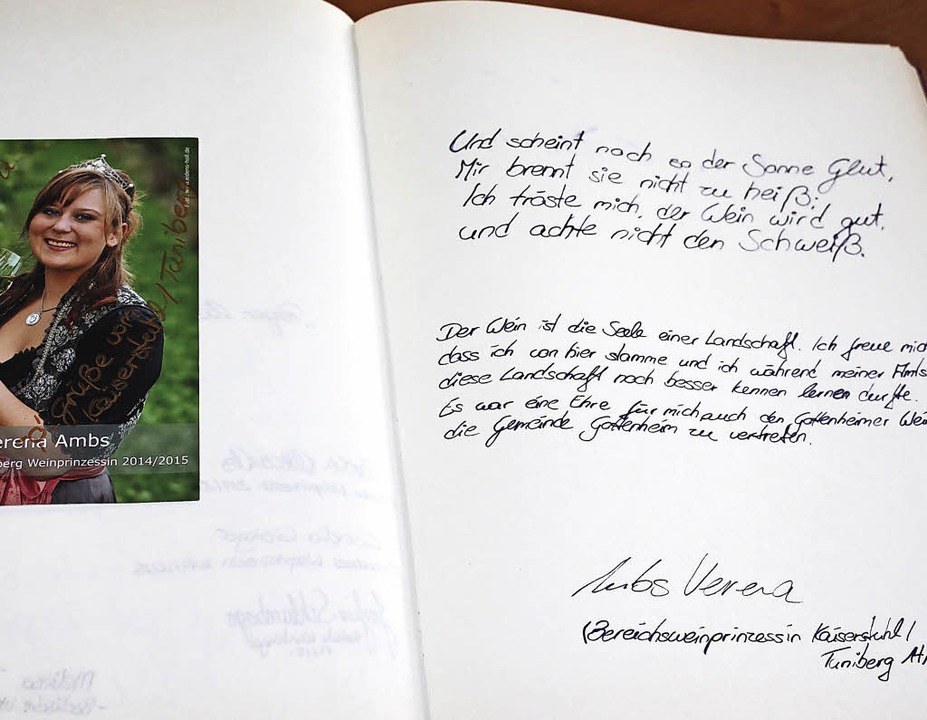 Grüße vom
Kaiserstuhl / Tuniberg
erena Ambs
berg Weinprinzessin 2014/2015
Und scheint noch so der Sonne Glut,
Mir brennt sie nicht zu heiß.
Ich tröste mich, der Wein wird gut,
und achte nicht den Schweiß.
Der Wein ist die Seele einer Landschaft. Ich freue mic
dass ich von hier stamme und ich während meiner Amts
diese Landschaft noch besser kennen lernen durfte.
Es war eine Ehre für mich auch den Gottenheimer Wei
die Gemeinde Gottenheim zu vertreten.
Ambs Verena
(Bereichsweinprinzessin Kaiserstuhl /
Tuniberg